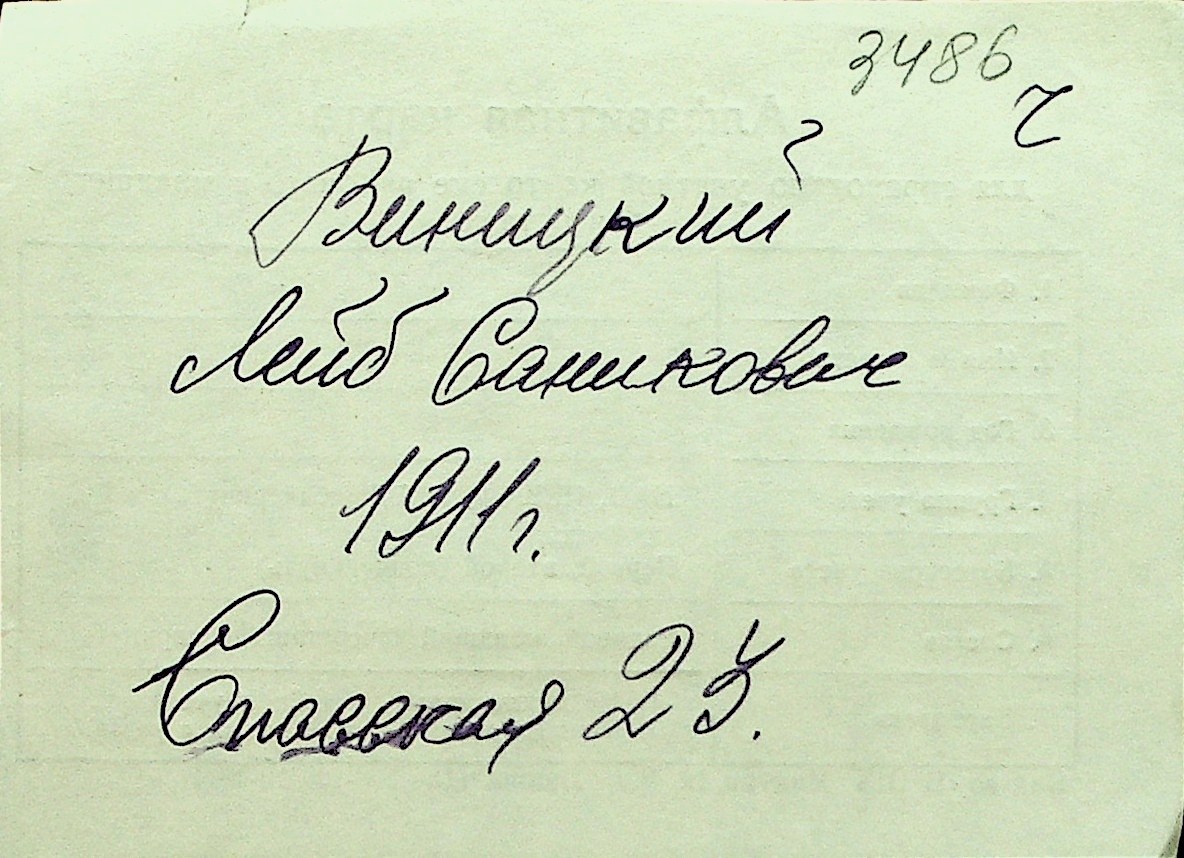 3486
ч
Виницкий
Лейб Саникович
1911г.
Спасская 23.